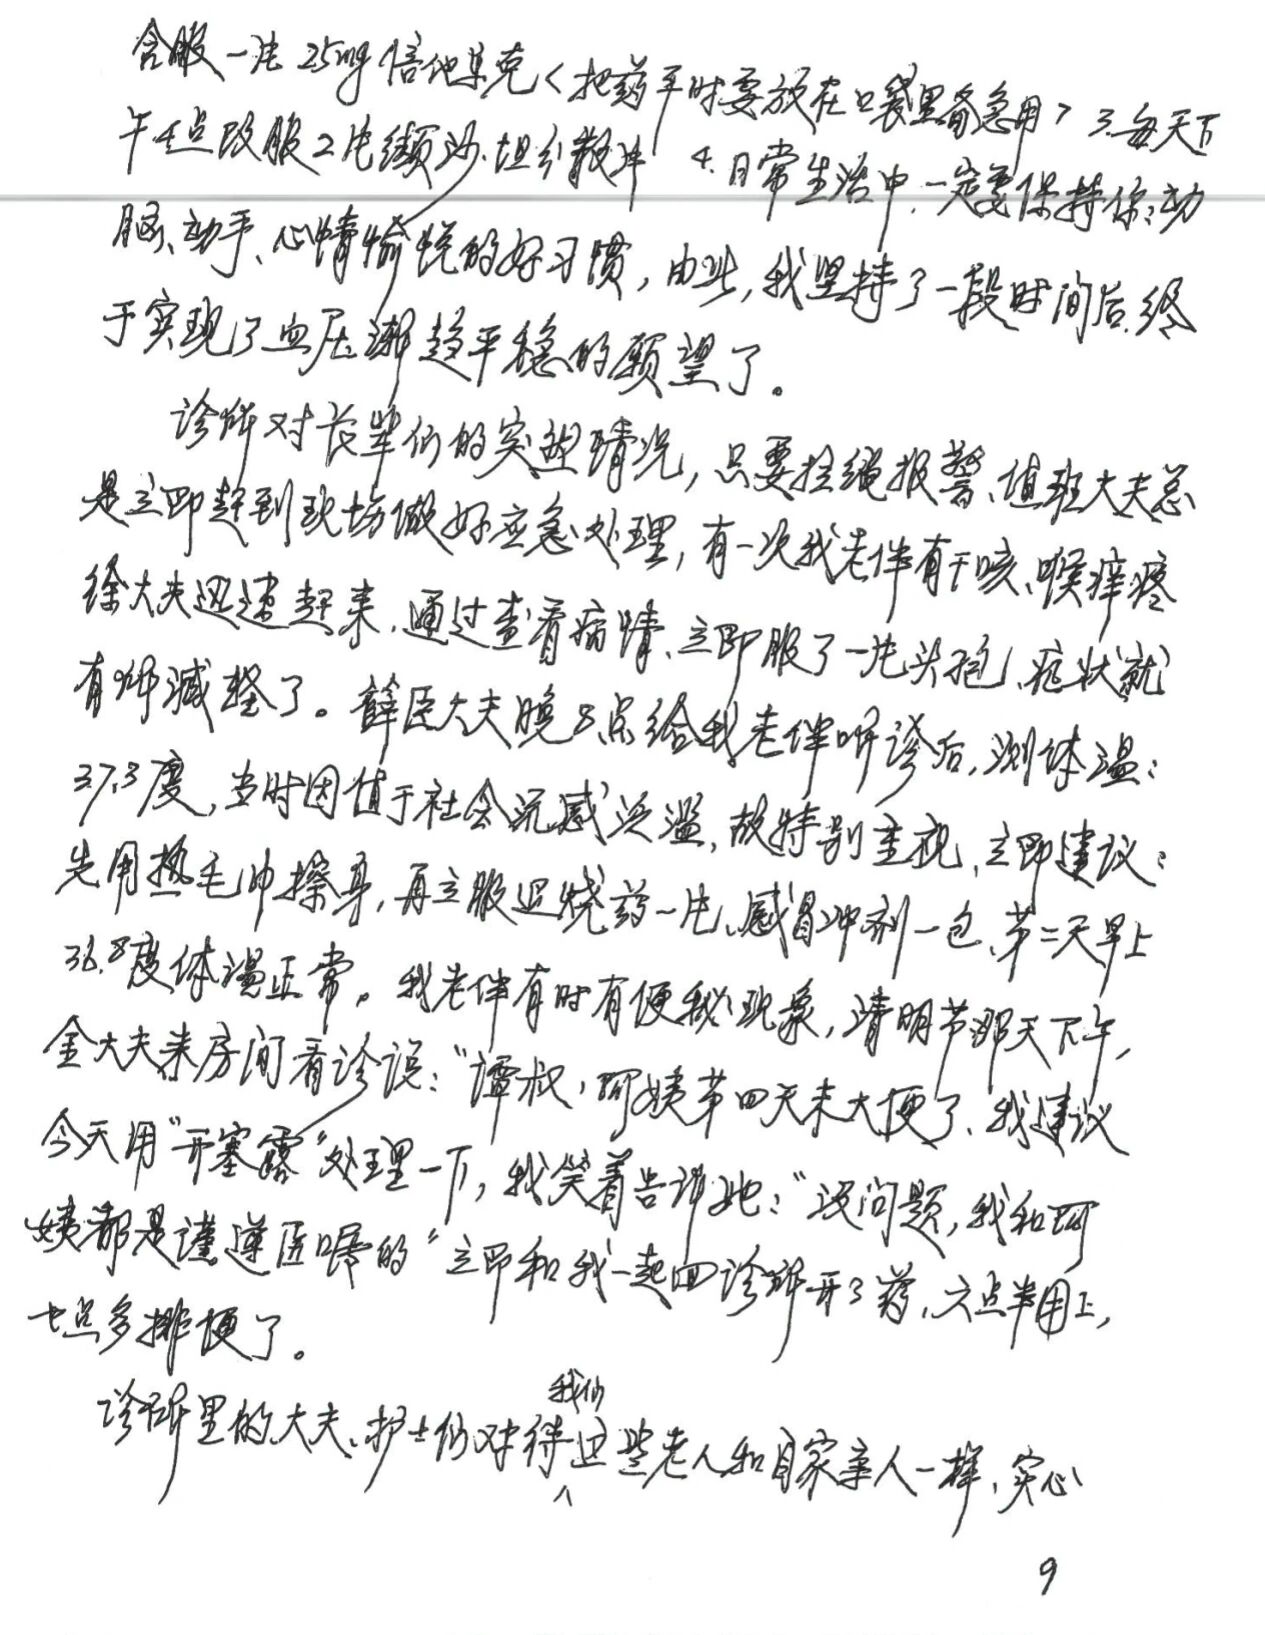 含服一片25mg倍他乐克<把药平时要放在口袋里备急用> 3.每天下
午4点改服2片缬沙坦分散片 4.日常生活中、一定要保持你:动
脑、动手、心情愉悦的好习惯,由此,我坚持了一段时间后、终
于实现了血压渐趋平稳的愿望了。
诊所对长辈们的突发情况,只要拉绳报警、值班大夫总
是立即赶到现场做好应急处理,有一次我老伴有干咳、喉痒疼
徐大夫迅速赶来、通过查看病情、立即服了一片头孢、症状就
有所减轻了。薛医大夫晚8点给我老伴听诊后,测体温:
37.3度,当时因值于社会流感泛滥,故特别重视、立即建议:
先用热毛巾擦身,再立服退烧药一片、感冒冲剂一包、第二天早上
36.8度体温正常。我老伴有时有便秘现象,清明节那天下午,
金大夫来房间看诊说:“谭叔,阿姨第四天未大便了、我建议
今天用“开塞露”处理一下,我笑着告诉她:“没问题,我和阿
姨都是谨遵医嘱的”立即和我一起回诊所开了药、六点半用上,
七点多排便了。
诊所里的大夫、护士们对待我们这些老人和自家亲人一样、实心
9